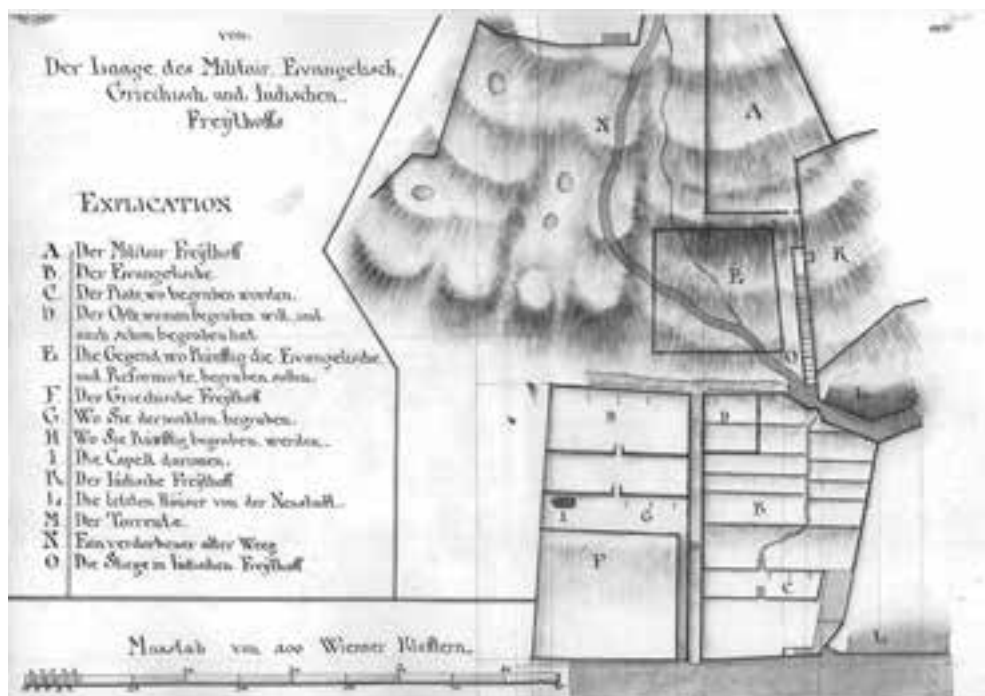 von
Der Laage des Militair, Evangelisch,
Griechisch und Jüdischen
Freÿthoffs
EXPLICATION
A Der Militair Freÿthoff
B. Der Evangelische
C. Der Platz wo begraben worden.
D. Der Orth begraben will, und
auch schon begraben hat.
E. Die Gegend wo künfftig die Evangelische
und Reformirte begraben sollen.
F. Der Griechische Freÿthoff
G. Wo Sie dermahlen begraben.
H Wo Sie künfftig begraben werden.
I Die Capell darinnen.
K. Der Jüdische Freÿthoff
L. Die letzten Häuser von der Neustadt.
M Der Torrente.
N Ein verdorbener alter Weeg
O Die Stiege in Jüdischen Freÿthoff
Maastab von 100 Wienner Klafftern.
N
A
E
K
O
L
H
D
I
G
B
F
B
C
L